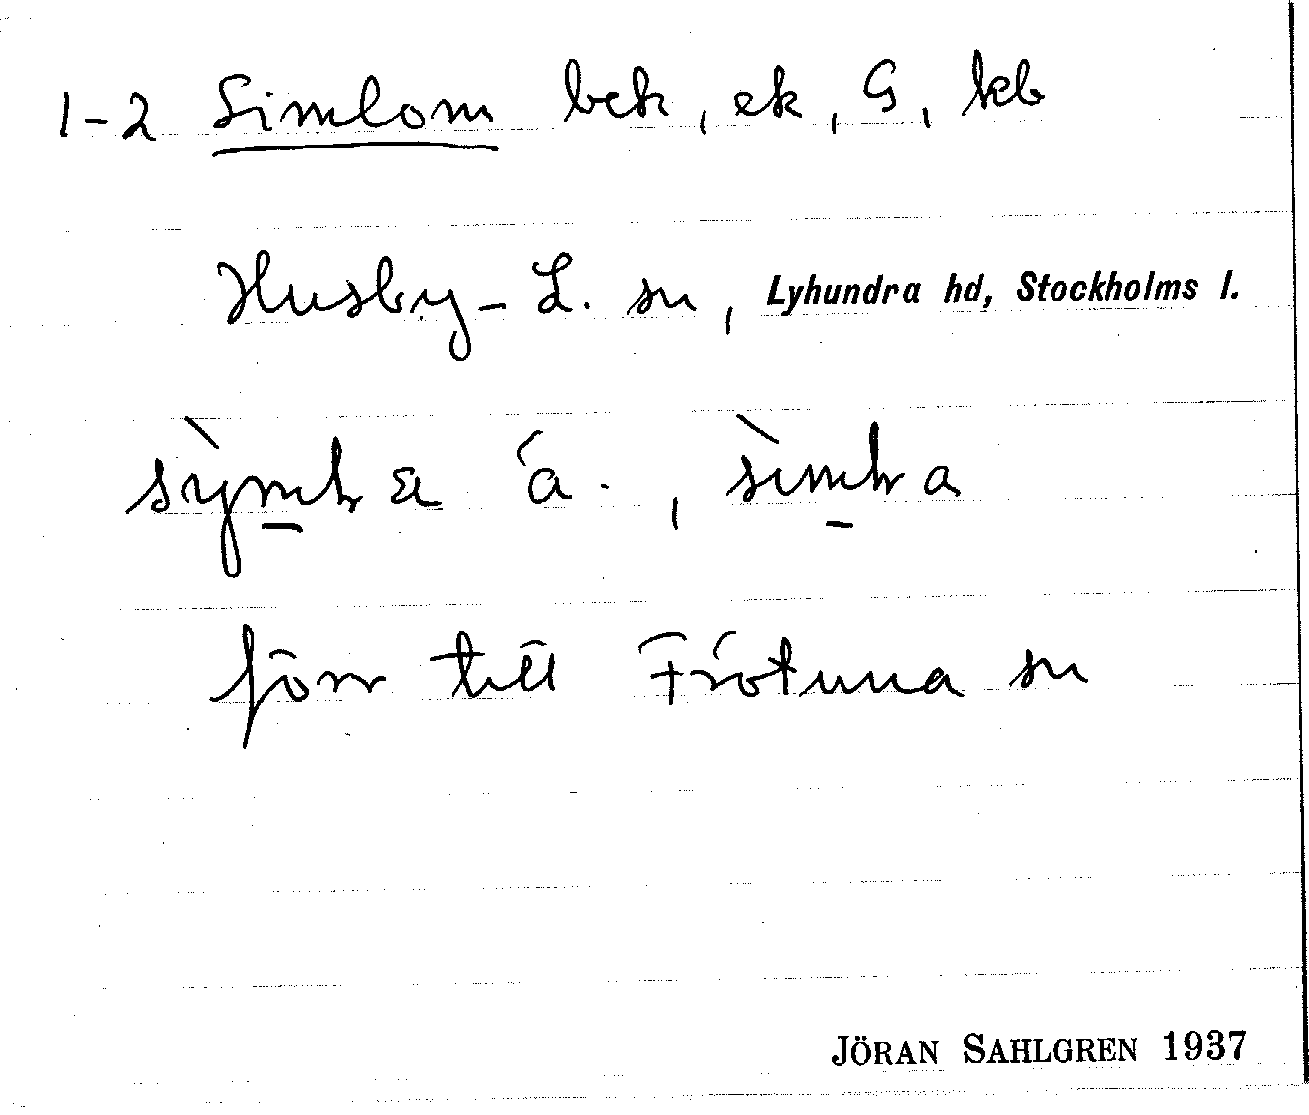 1-2 Simlom bek, ek, G, kb
Husby-L. sn, Lyhundra hd, Stockholms l.
förr till Frötuna sn
JÖRAN SAHLGREN 1937